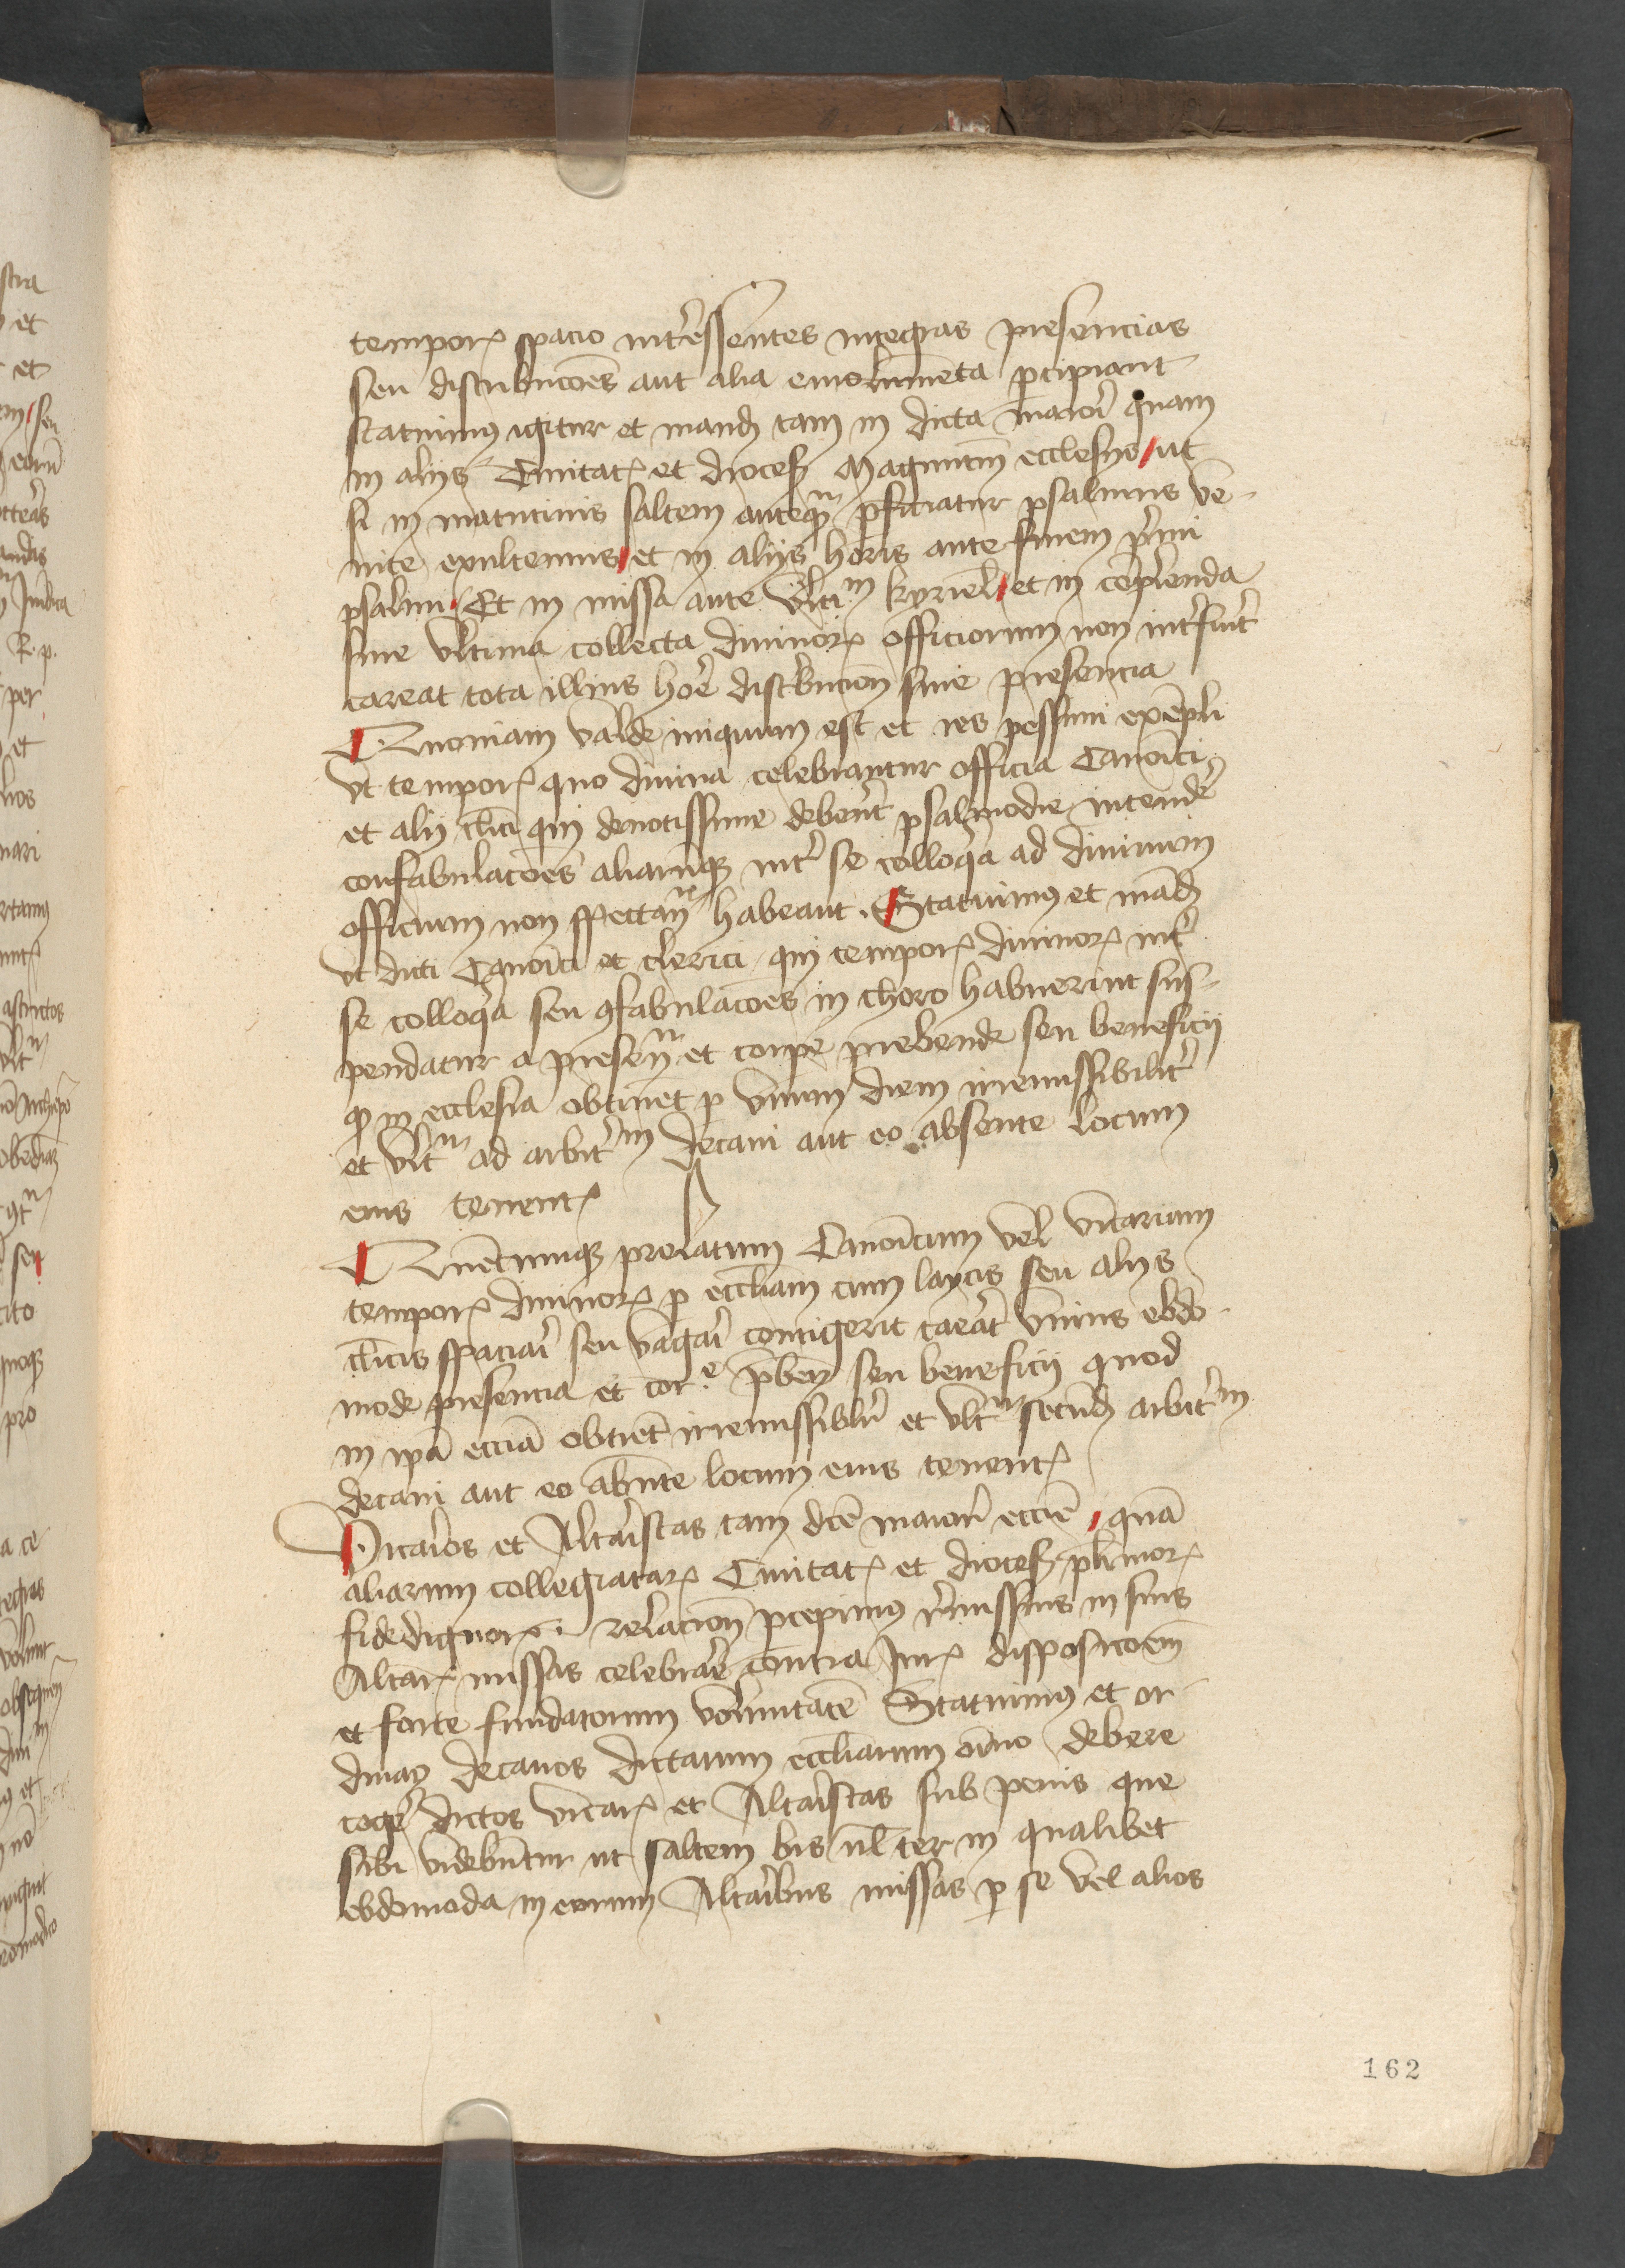 temporꝭ spacio int̾essentes integras presencias
seu distribuco̅es aut alia emolume̅ta ꝑcipiant
statuimꝰ igitur et mandꝫ tam in dicta maiori quam
in alijs Ciuitatꝭ et dioces̅ Magunti̅n ecclesijs ut
si in matutinis saltem anteqᷓm ꝑficiatur psalmus ve-
nite exultemus et in alijs horis ante finem p̾mi
psalmi Et in missa ante vlti̅m kyriel̅ et in co̅plenda
siue vltima collecta diuinorꝭ officiorum non int̾fu̅it
careat tota illius hor̾e distribucio̅n siue presencia
Quoniam valde iniquum est et res pessimi exe̅pli
vt temporꝭ quo diuina celebrantur officia Canoi̅ci
et alij cl̅ici qui deuotissime debere̅t psalmodie intend̾e
confabulaco̅es aliaruꝫ int̾ se colloq̾a ad diuinum
officium non spectan̅ habeant Statuimꝰ et ma̅dꝫ
vt dicti Canoi̅ci et clerici qui temporꝭ diuinorꝭ int̾
se colloq̾a seu ꝯfabulaco̅es in choro habuerint sus-
pendatur a presen̅ et corpe prebende seu beneficij
qꝫ in ecclesia obtinet ꝑ vnum diem irremissibilit̾
et vlt̾ m ad arbit̾m decani aut eo absente locum
eius tenentꝭ
Quē̅cumqꝫ prelatum Canoi̅cum vel vicarium
temporꝭ diuinorꝭ ꝑ eccl̅iam cum laycis seu alijs
cl̅icis spaciar̾i seu vagar̾i contigerit careat vnius ebdo-
mode presencia et cor.e p̅ben̅ seu beneficij quod
in ip̅a ecc̅ia obtine̅t irremissiblr̾ et vlt̾m secundꝫ arbit̾m
decani aut eo ab̅nte locum eius tenentꝭ
Vicar̾ios et Altar̾istas tam dc̅e maioris ecc̅ie qua̅
aliarum collegiatarꝭ Ciuitatꝭ et dioces̅ pl̅imorꝭ
fidedignorꝭ relacio̅n ꝑcepimus r̾missius in suis
Altarꝭ missas celebrar̾e contra Jurꝭ disposico̅em
et forte fundatorum volunta̅te Statuimꝰ et or
dinaꝫ decanos dictarum eccl̅iarum oi̅no debere
cog̾e dictos vicarꝭ et Altar̾istas sub penis que
sibi videbu̅tur ut saltem bis vl̅ ter in qualibet
ebdomoda in eorum Altar̾ibus missas ꝑ se vel alios
162